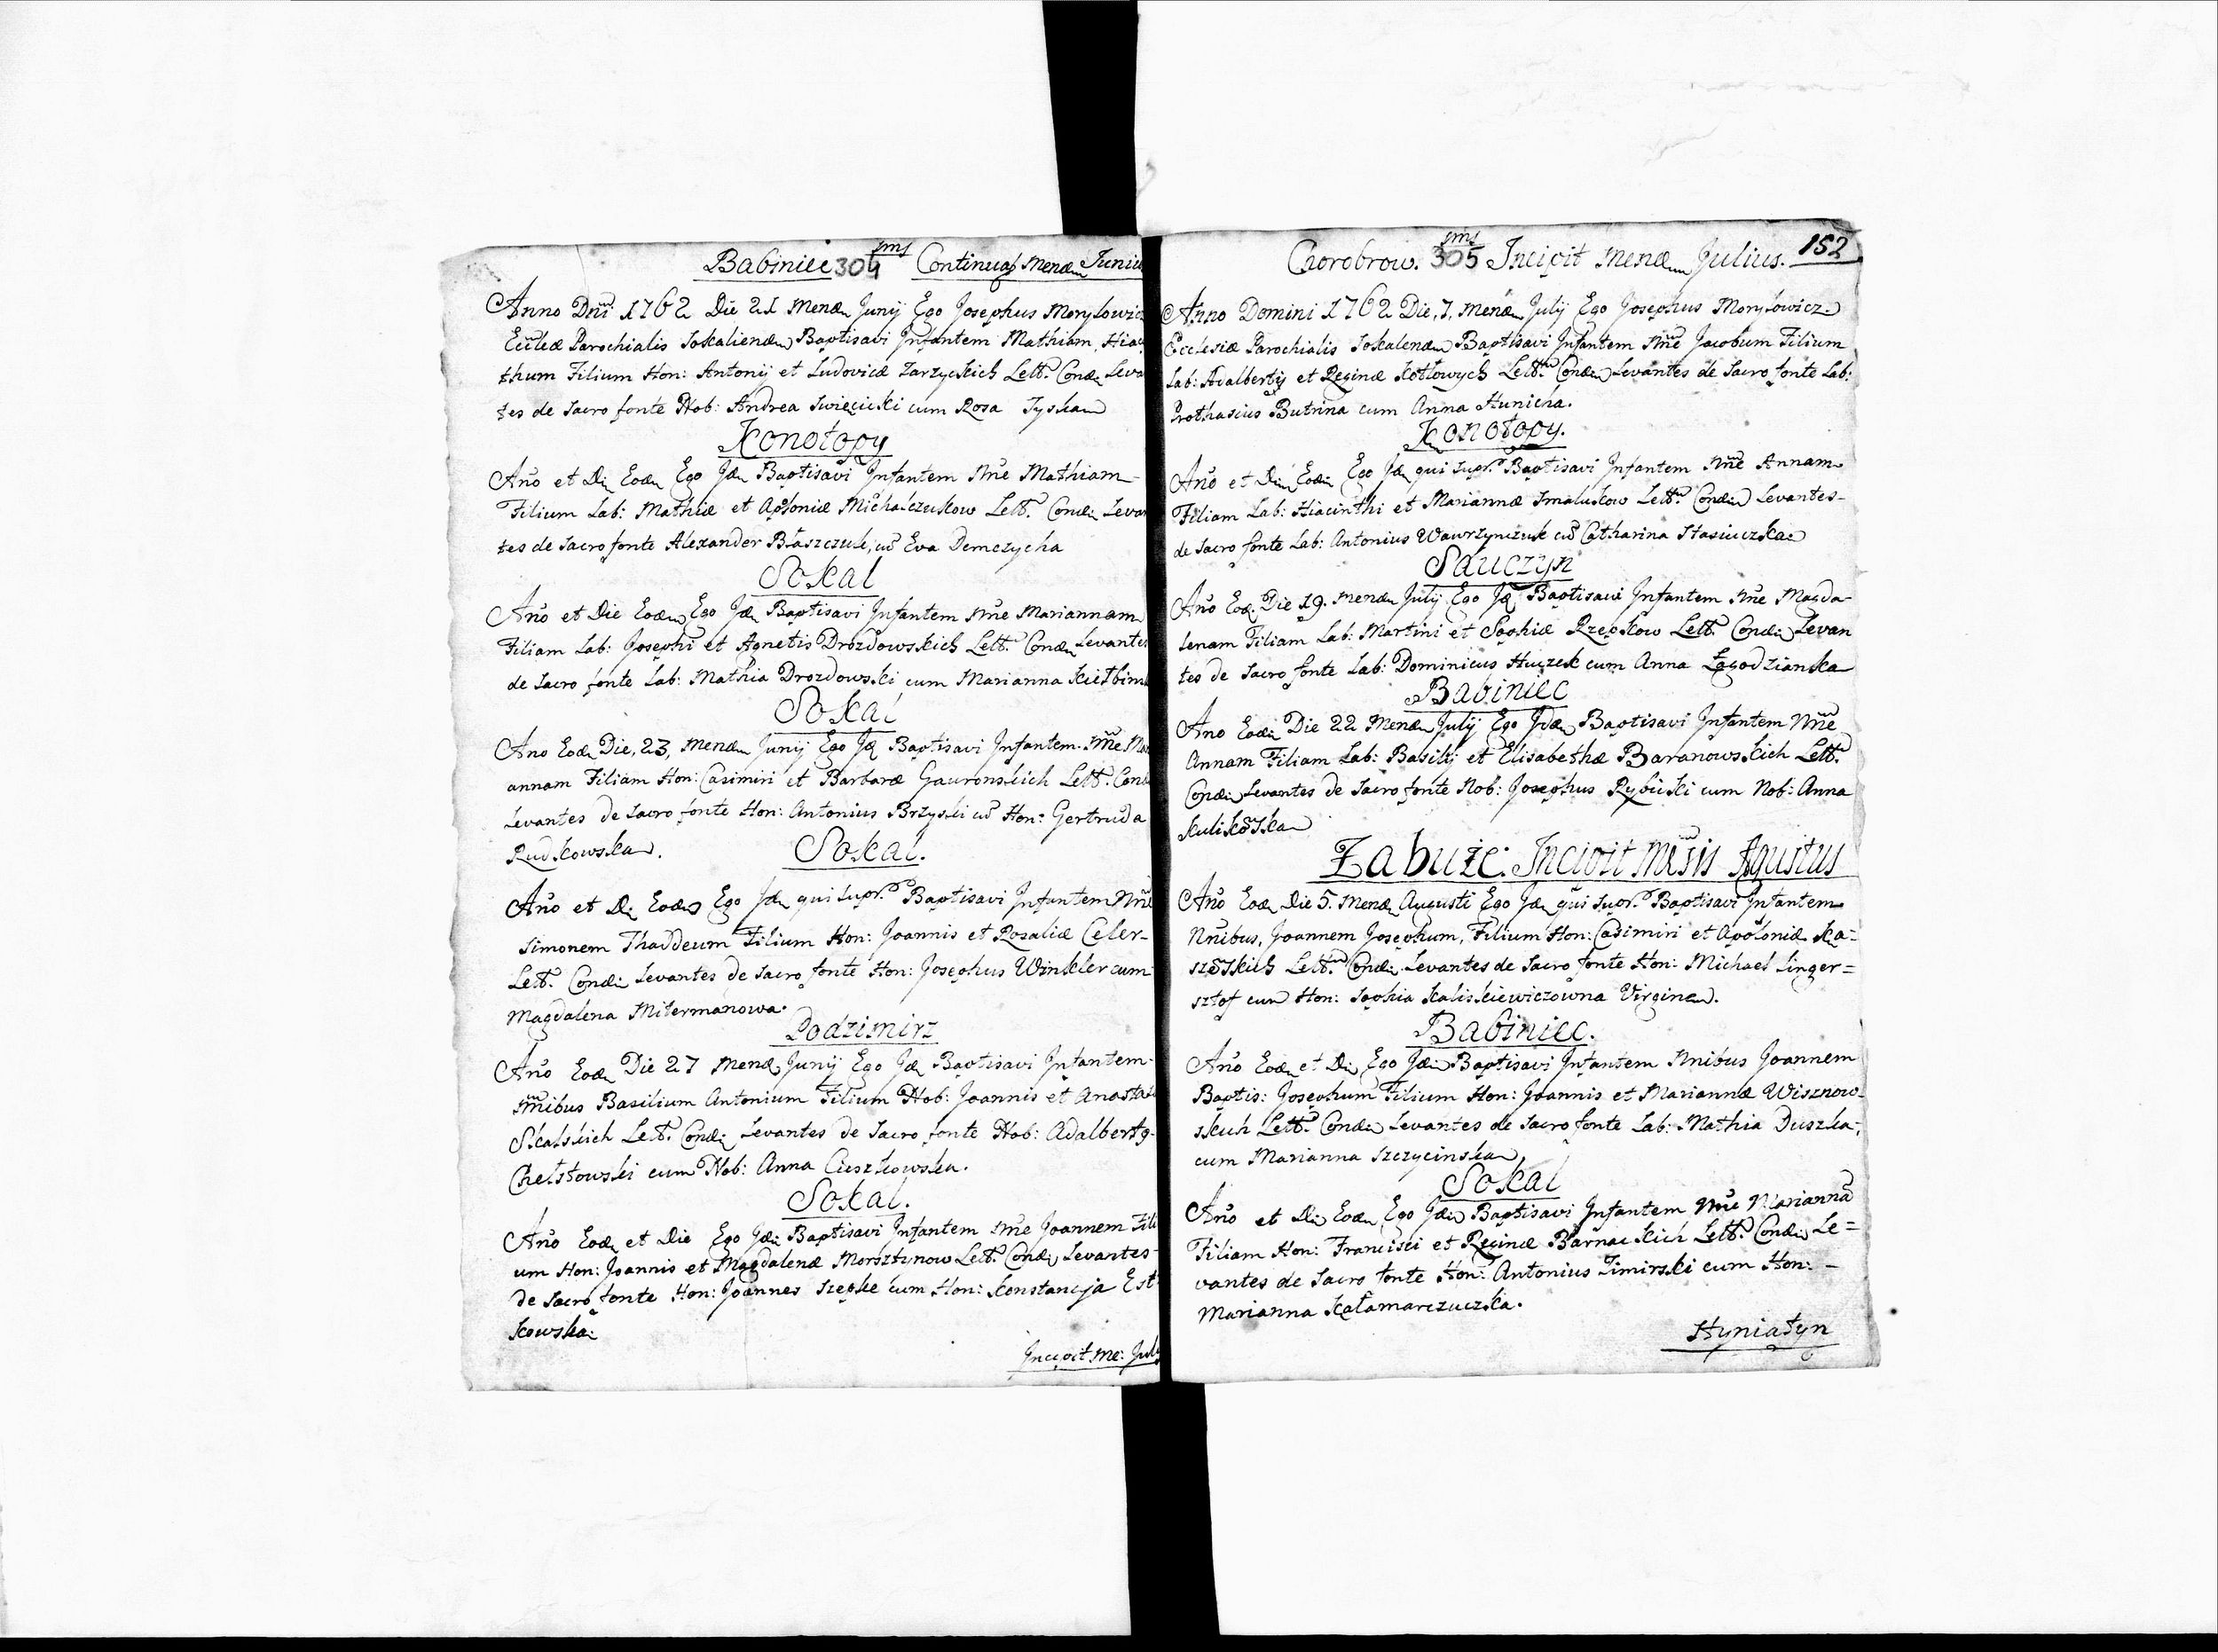 Babiniec 304 sms Continuaʃ Mensem Juniu
Anno Dni 1762 Die 21 Mensẽ Junij Ego Josephus Morylowicz
Eccleæ Parochialis Sokaliensem Baptisavi Infantem Mathiam, Hiac
thum Filium Hon: Antonij et Ludovicæ Zarzyckich Lett. Condi Leva
tes de Sacro fonte Nob: Andrea Swięcicki cum Rosa Tyska
Konotopy
Año et Di Eodẽ Ego Idẽ Baptisavi Infantem Nñe Mathiam
Filium Lab: Mathiæ et Apoloniæ Michalczukow Lett. Condi Levan
tes de Sacro fonte Alexander Błaszczuk, cũ Eva Demczycha
Sokal
Año et Die Eodẽ Ego Idẽ Baptisavi Infantem Nñe Mariannam
Filiam Lab: Josephi et Agnetis Drozdowskich Lett. Condẽ Levantes
de Sacro fonte Lab: Mathia Drozdowski cum Marianna Kiełbin
Sokal
Ano Eodẽ Die, 23, Mensẽ Junij Ego Idẽ Baptisavi Infantem Nñe Mar
annam Filiam Hon: Casimiri et Barbaræ Gauronskich Lett. Cond
Levantes de Sacro fonte Hon: Antonius Brzyski cũ Hon: Gertruda
Rudkowska.
Sokal.
Año et Di Eodẽ Ego Idẽ qui supr. Baptisavi Infantem Nñe
Simonem Thaddeum Filium Hon: Joannis et Rosaliæ Celer-
Lett. Condi Levantes de Sacro fonte Hon: Josephus Winkler cum
Magdalena Mitermanowa.
Podzimirz
Año Eodẽ Die 27 Mensẽ Junij Ego Idẽ Baptisavi Infantem
Nñibus Basilium Antonium Filium Nob: Joannis et Anasta
Skalskich Lett. Condi Levantes de Sacro fonte Nob: Adalbertg
Chełstowski cum Nob: Anna Cieszkowska.
Sokal.
Año Eodẽ et Die Ego Idẽ Baptisavi Infantem Nñe Joannem Fili
um Hon: Joannis et Magdalenæ Morsztynow Lett. Condi Levantes
de Sacro fonte Hon: Joannes Szepke cum Hon: Konstancja Est
kowska
Incipit Me: Juli
Chorobrow. 305 sms Incipit Mensem Julius. 152
Anno Domini 1762 Die, 7, Mensẽ July Ego Josephus Morylowicz
Ecclesiæ Parochialis Sokalensem Baptisavi Infantem Nñe Jacobum Filium
Lab: Adalbertij et Reginæ Kotłowych Lett. Condi Levantes de Sacro fonte Lab:
Prothasius Butrina cum Anna Hunicha.
Konotopy.
Año et Di Eodẽ Ego Idẽ qui supr. Baptisavi Infantem Nñe Annam
Filiam Lab: Hiacinthi et Mariannæ Smalukow Lett. Condi Levantes
de Sacro fonte Lab: Antonius Wawrzynczuk cũ Catharina Stasiuczka
Sawczyn
Año Eod. Die 19. Mensẽ July Ego Idẽ Baptisavi Infantem Nñe Magda
lenam Filiam Lab: Martini et Sophiæ Rzepkow Lett. Condi Levan
tes de Sacro fonte Lab: Dominicus Huczek cum Anna Łagodzianka
Babiniec
Ano Eodẽ Die 22 Mensẽ July Ego Idẽ Baptisavi Infantem Nñe
Annam Filiam Lab: Basilij et Elisabethæ Baranowskich Lett.
Condi Levantes de Sacro fonte Nob: Josephus Rybicki cum Nob: Anna
Kulikõska
Zabuże. Incipit Mẽsis Agustus
Año Eodẽ Die 5. Mensẽ Augusti Ego Idẽ qui supr. Baptisavi Infantem
Nñibus, Joannem Josephum, Filium Hon: Casimiri et Apoloniæ Ka=
szõskich Lett. Condi Levantes de Sacro fonte Hon: Michael Linger=
sztof cum Hon: Sophia Kaliskiewiczowna Virgine.
Babiniec.
Año Eodẽ et Di Ego Idẽ Baptisavi Infantem Nnibus Joannem
Baptis: Josephum Filium Hon: Joannis et Mariannæ Wisznow-
skich Lett. Condi Levantes de Sacro fonte Lab: Mathia Duszka,
cum Marianna Szczycinska
Sokal
Año et Di Eodẽ Ego Idẽ Baptisavi Infantem Nñe Mariannã
Filiam Hon: Francisci et Reginæ Barnackich Lett. Condi Le=
vantes de Sacro fonte Hon: Antonius Zimirski cum Hon: -
Marianna Kałamarczuczka.
Hyniatyn